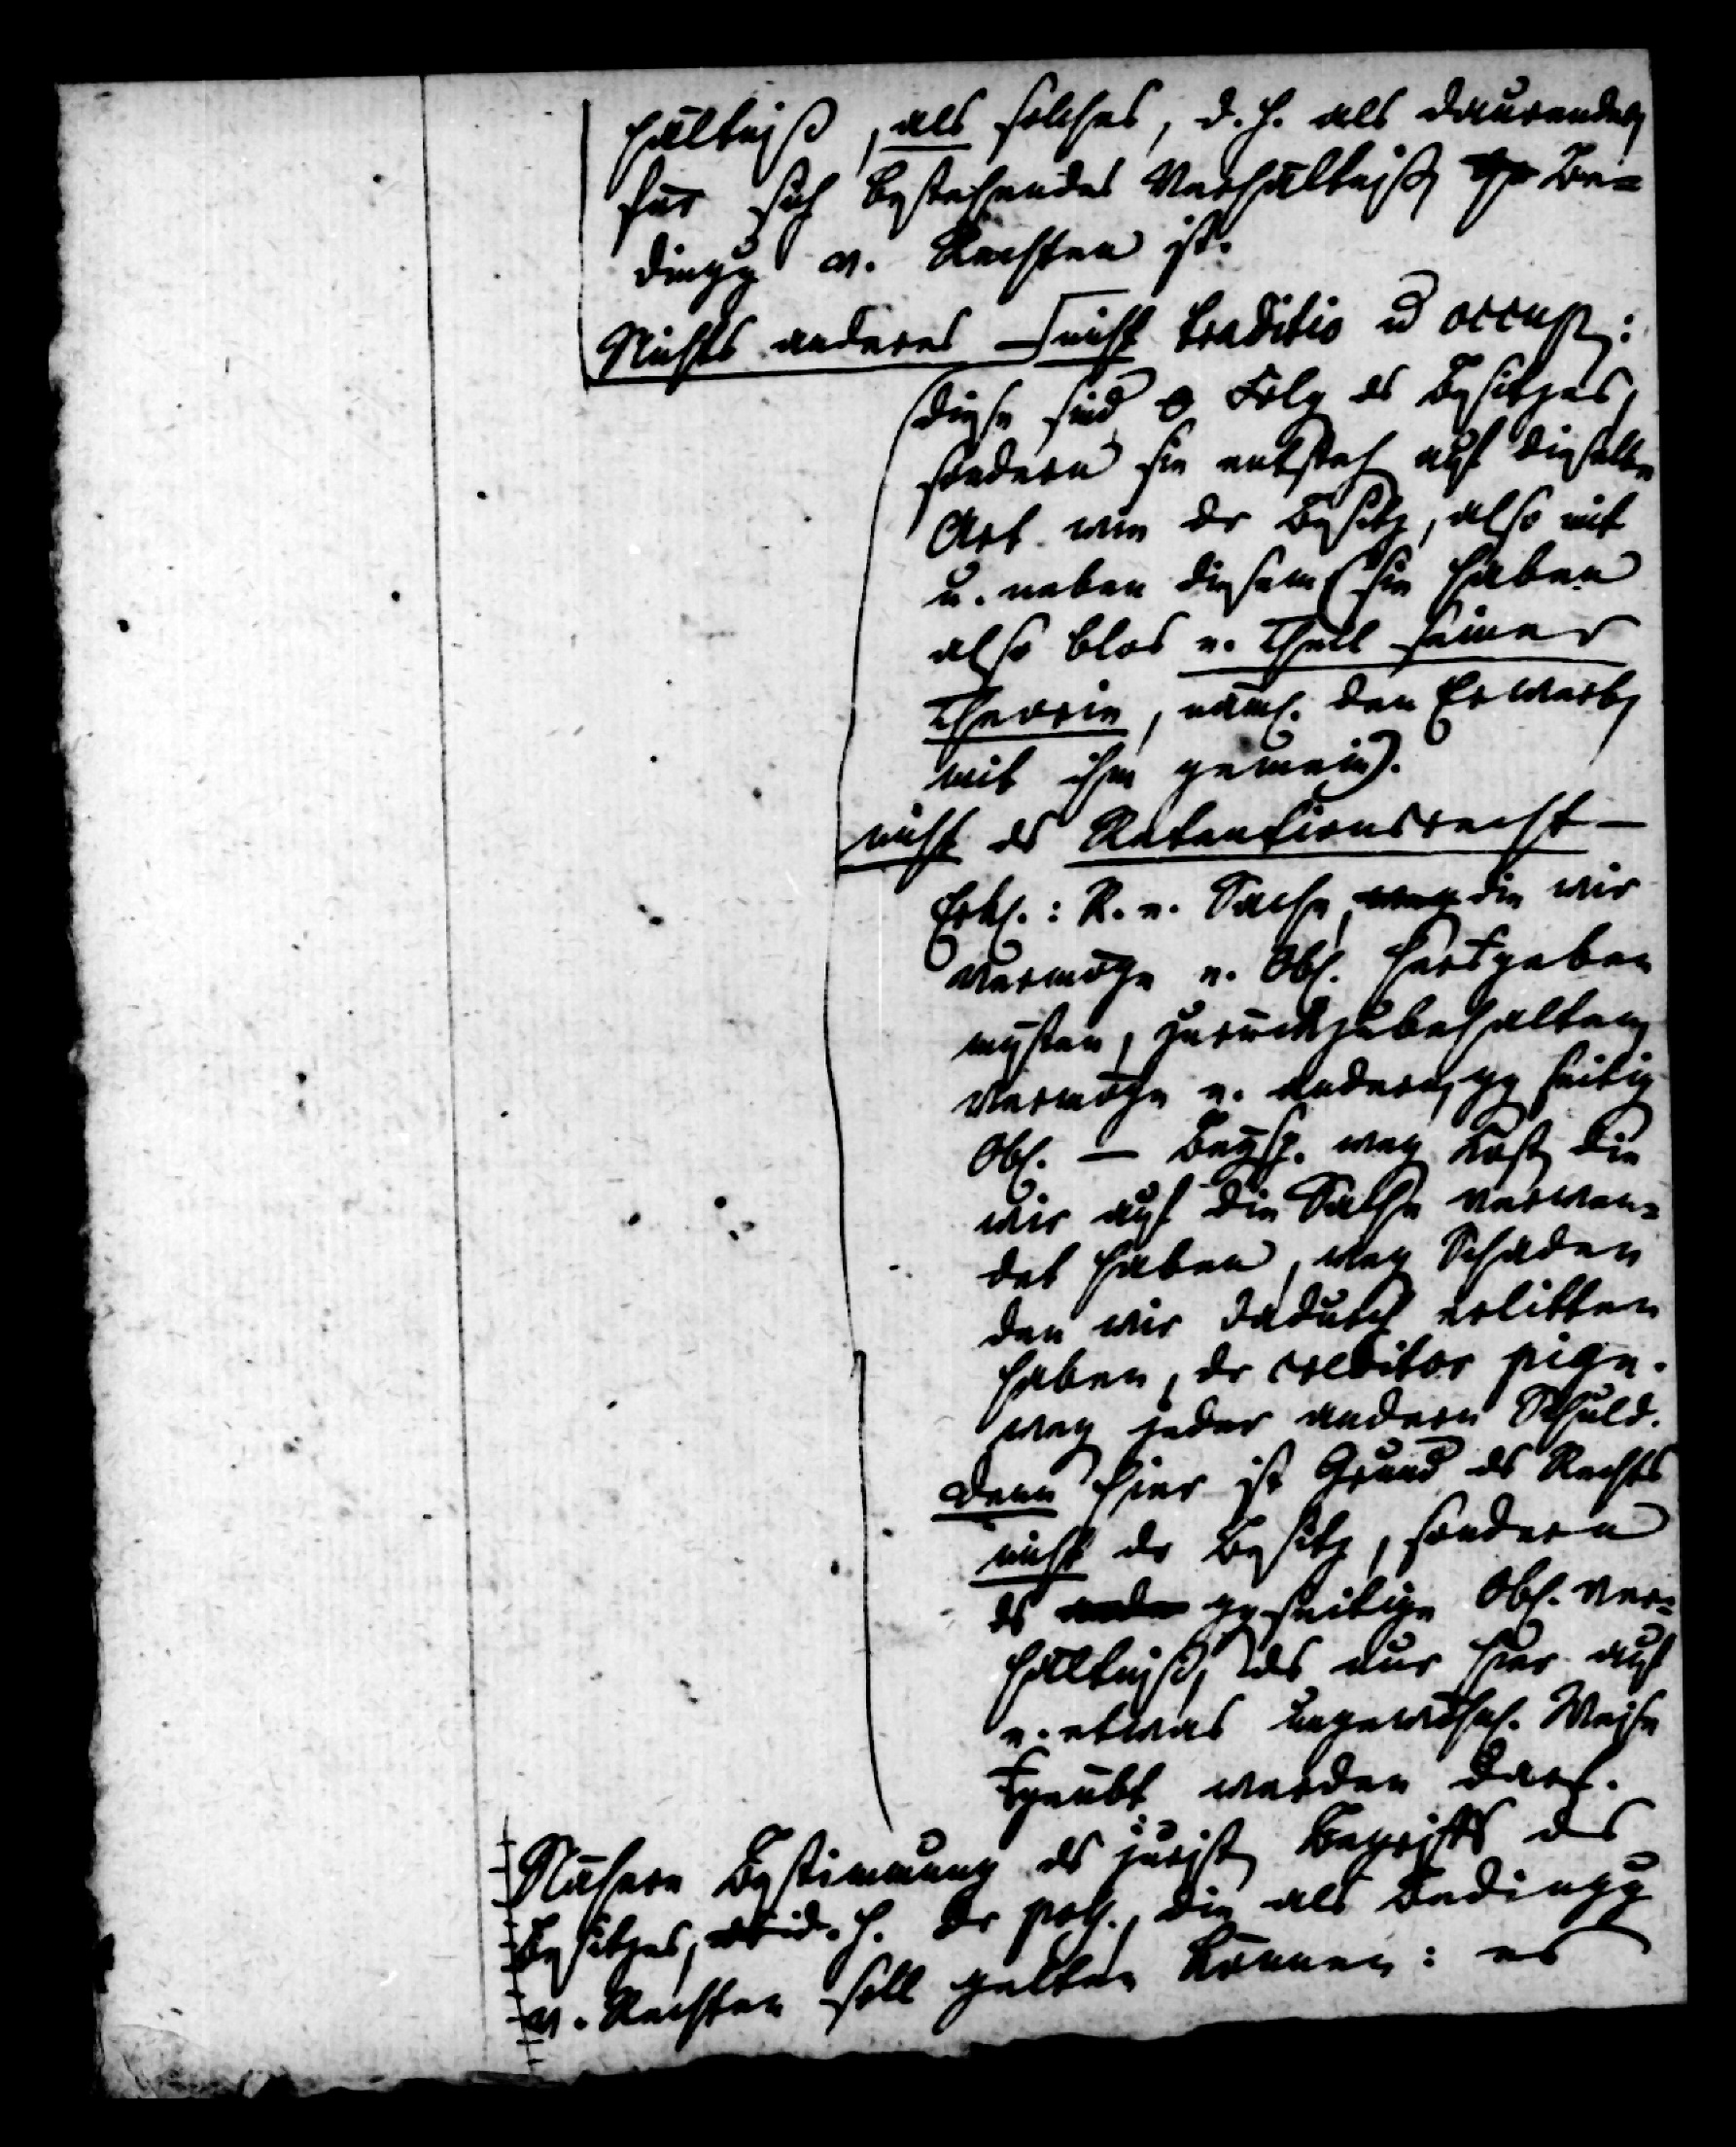 hältniß, als solches, d. h. als daurendes
für sich bestehendes Verhältniß Be=
dingg v. Rechten ist.
Nichts anderes — nicht traditio u occup:
(diese sind Folg ds Besitzes,
sondern sie entsteh auf dieselbe
Art wie dr Besitz, also mit
u. neben diesem (sie haben
also blos e. Theil seiner
Theorie, näml. den Erwerb,
mit ihm gemein).
nicht ds Retentionsrecht —
Erkl.: R. e. Sache, die wir
vermöge e. Obl. herausgeben
müsten, zurückzubehalten,
vermöge e. andern, ggseitig
Obl. — Beysp. weg Kost, die
wir auf die Sache verwen=
det haben, weg Schaden
den wir dadurch erlitten
haben, dr creditor pign.
weg jeder andern Schuld.
Denn hier ist Grund ds Rechts
nicht dr Besitz, sondern
ds ggseitige Obl. ver=
hältniß, ds nur hier auf
e. etwas ungewöhnl. Weise
ausgeübt werden darf.
Nähere Bestimmung ds jurist Begriffs des
Besitzes, d. h. dr poss., die als Bedingg
v. Rechten soll gelten können: es